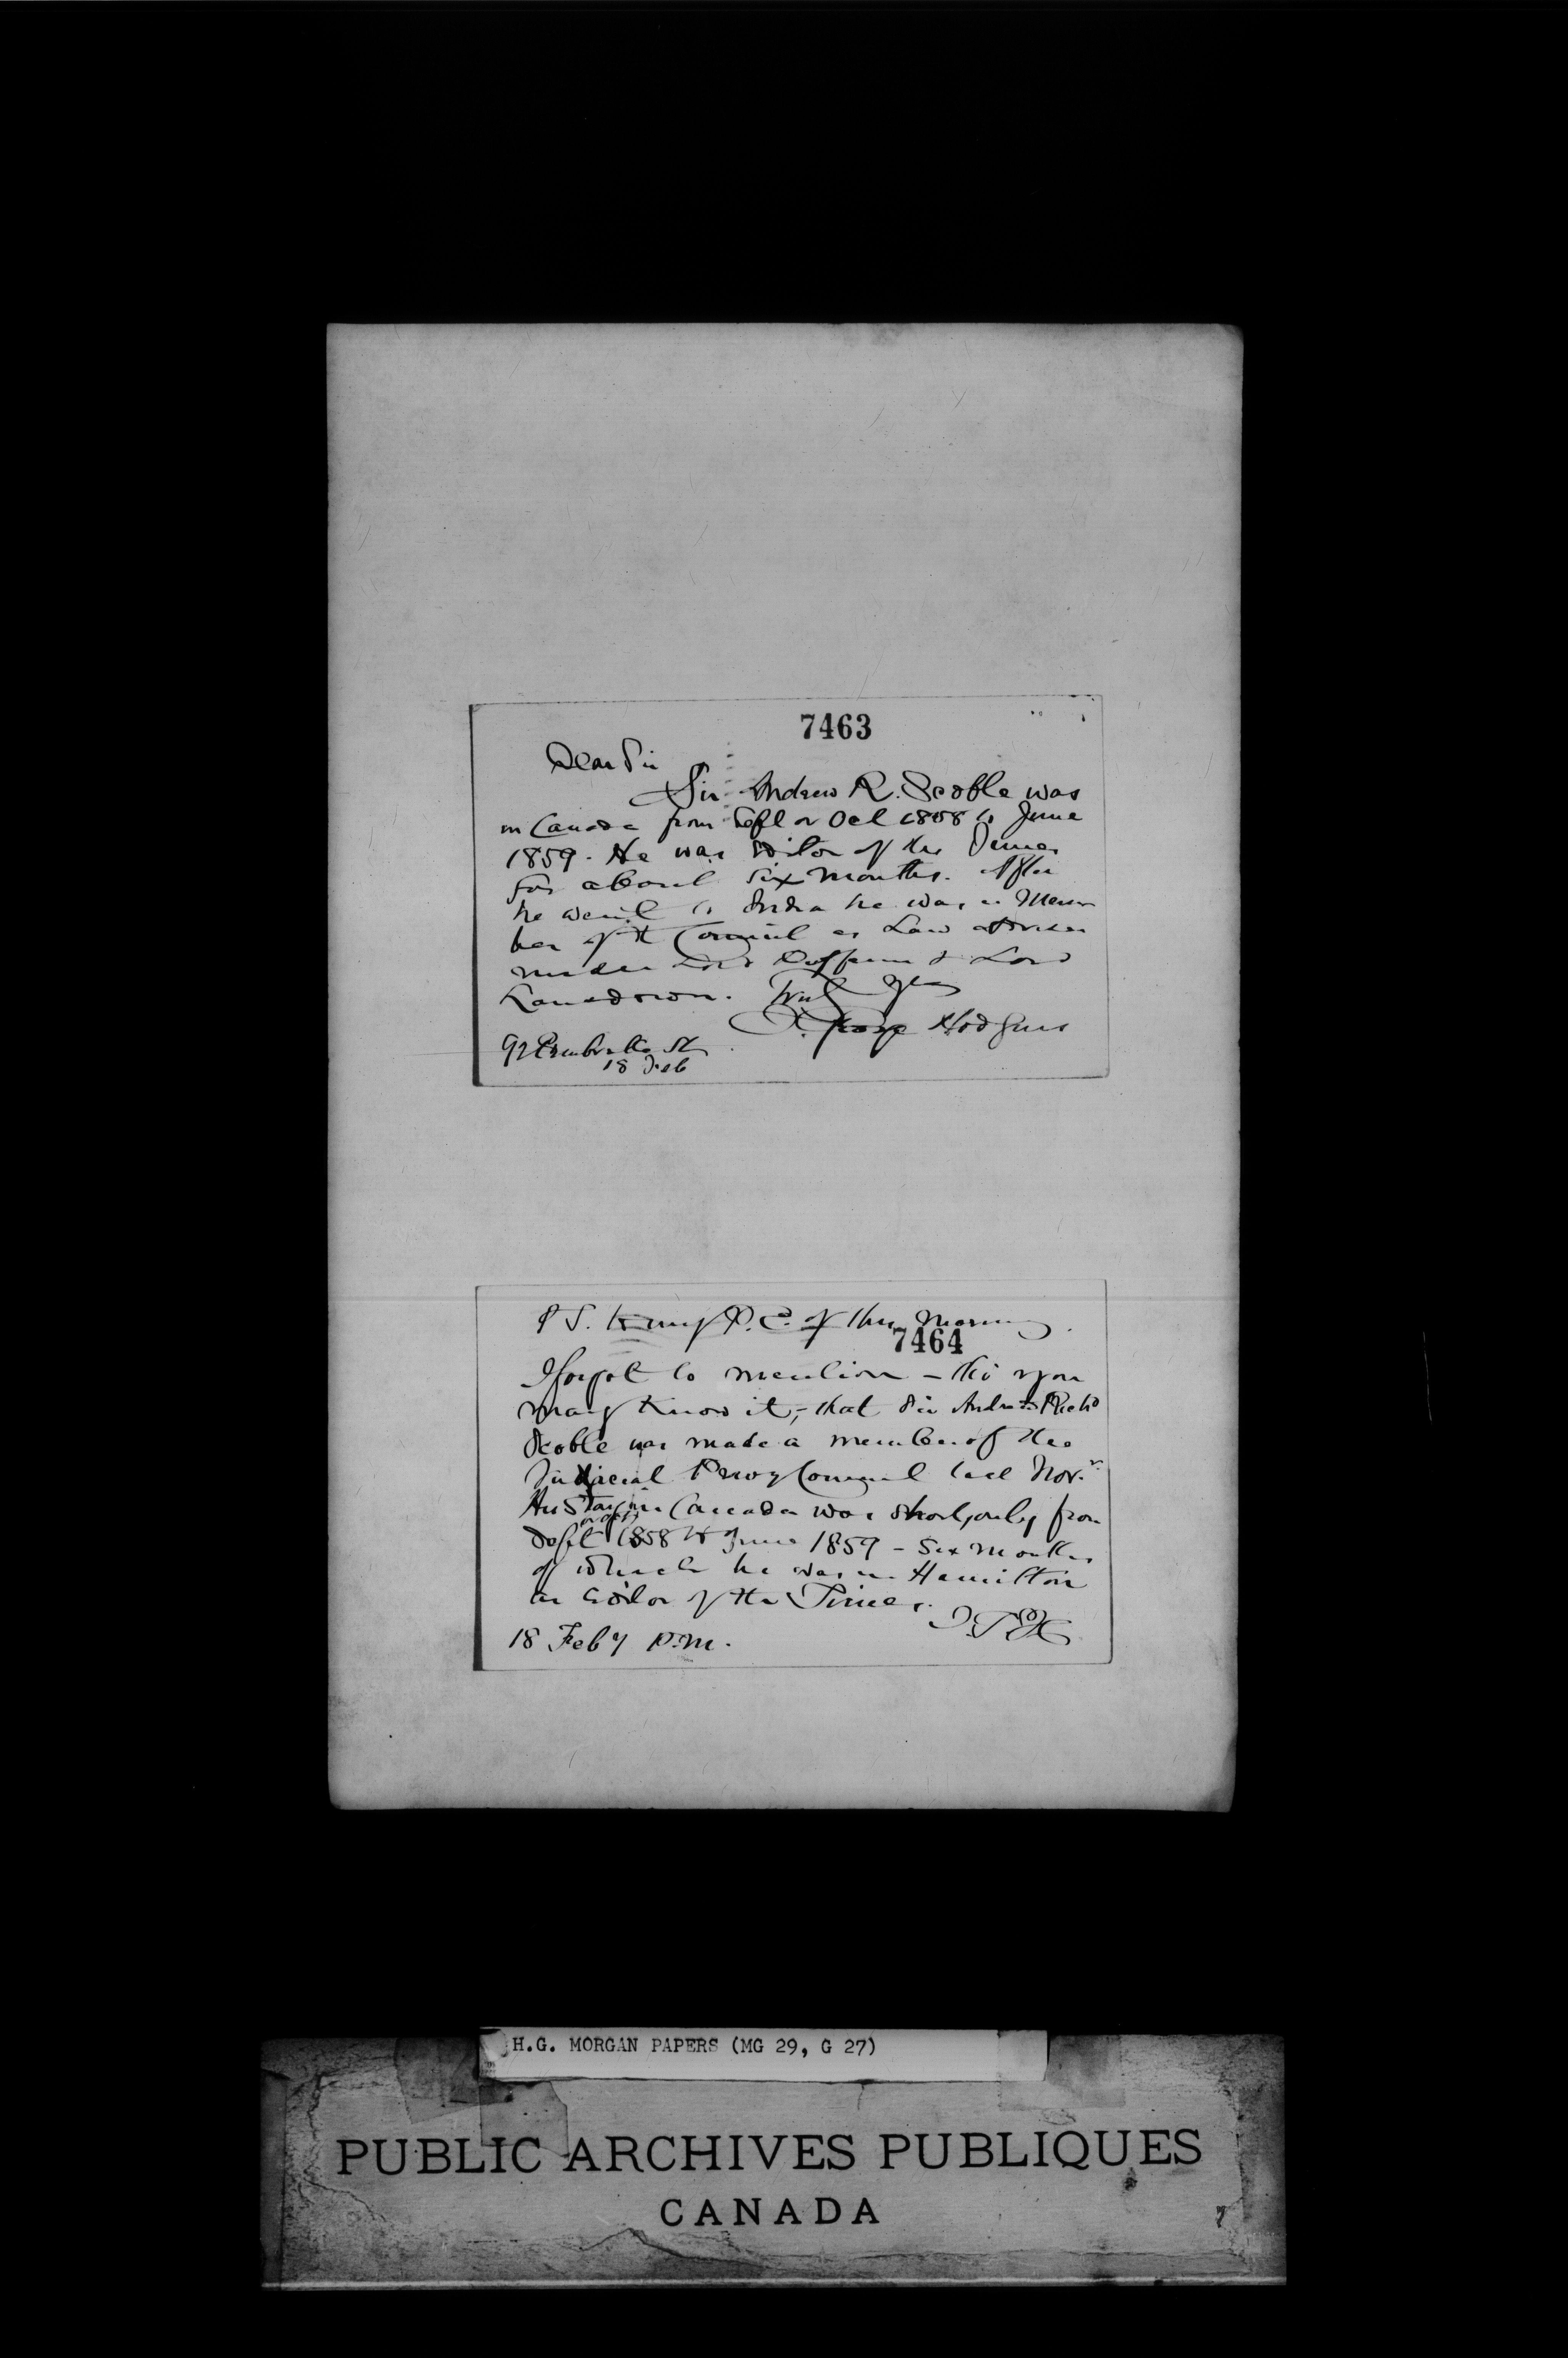 7463
Dear Sir
Sir Andrew R. Scoble was
in Canada from Sept or Oct 1858 to June
1859. He was Editor of the Times
for about six months. After
he went to India he was a Mem
ber of the Council as Law Adviser
under Lord Dufferin & Lord
Lansdown. Truly Yrs
J. George Hodgins
92 Pembroke St
18 Feb
P.S. to my P.C. of this morning.
7464
I forgot to mention – tho' you
may know it, – that Sir Andrew Richd
Scoble was made a member of the
Judicial Privy Council last Novr.
His stay in Canada was short, only from
or Oct
Sept 1858 to June 1859 – six months
of which he was in Hamilton
as Editor of the Times.
J.G.H
18 Feby P.M.
H.G. MORGAN PAPERS (MG 29, G 27)
PUBLIC ARCHIVES PUBLIQUES
CANADA